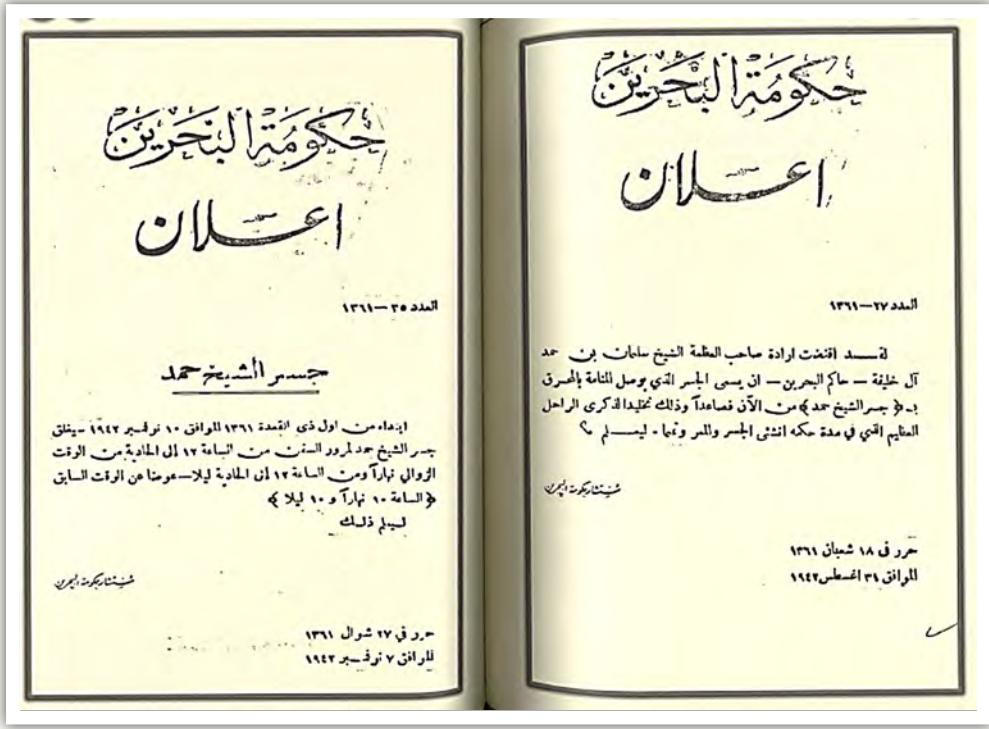 حكومة البحرين
اعلان
العدد ٢٧—١٣٦١
لقد اقتضت ارادة صاحب العظمة الشيخ سلمان بن حمد
آل خليفة — حاكم البحرين — ان يسمى الجسر الذي يوصل المنامة بالمحرق
بـ ﴿ جسر الشيخ حمد ﴾ من الآن فصاعداً وذلك تخليداً لذكرى الراحل
العظيم الذي في مدة حكمه انشئ الجسر والممر وتما - ليعلم
مستشار حكومة البحرين
حرر في ١٨ شعبان ١٣٦١
الموافق ٣١ اغسطس ١٩٤٢
حكومة البحرين
اعلان
العدد ٣٥—١٣٦١
جسر الشيخ حمد
ابتداء من اول ذي القعدة ١٣٦١ الموافق ١٠ نوفمبر ١٩٤٢ – يغلق
جسر الشيخ حمد لمرور السفن من الساعة ١٢ إلى الحادية من الوقت
الزوالي نهاراً ومن الساعة ١٢ إلى الحادية ليلا — عوضا عن الوقت السابق
﴿ الساعة ١٠ نهاراً و ١٠ ليلا ﴾
ليعلم ذلك
مستشار حكومة البحرين
حرر في ٢٧ شوال ١٣٦١
الموافق ٧ نوفمبر ١٩٤٢